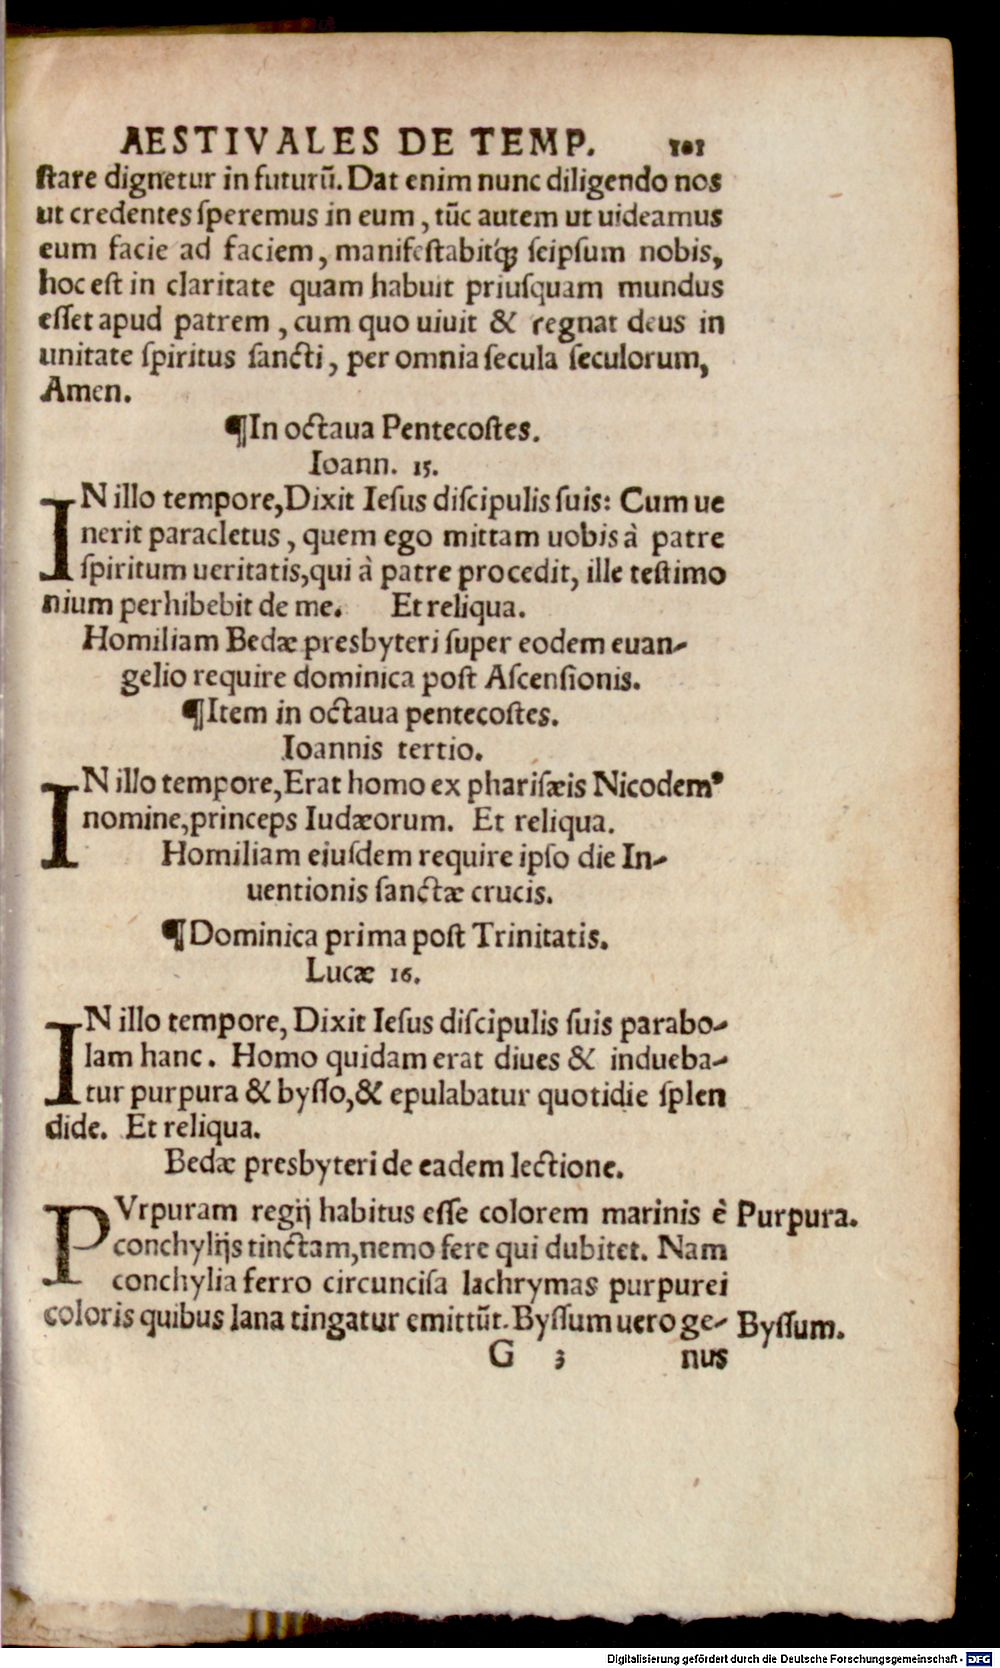 AESTIVALES DE TEMP. 101
ſtare dignetur in futurū. Dat enim nunc diligendo nos
ut credentes ſperemus in eum, tūc autem ut uideamus
eum facie ad faciem, manifeſtabitq́; ſeipſum nobis,
hoc eſt in claritate quam habuit priuſquam mundus
eſſet apud patrem, cum quo uiuit & regnat deus in
unitate ſpiritus ſancti, per omnia ſecula ſeculorum,
Amen.
¶In octaua Pentecoſtes.
Ioann. 15.
IN illo tempore, Dixit Ieſus diſcipulis ſuis: Cum ue
nerit paracletus, quem ego mittam uobis à patre
ſpiritum ueritatis, qui à patre procedit, ille teſtimo
nium perhibebit de me. Et reliqua.
Homiliam Bedæ presbyteri ſuper eodem euan-
gelio require dominica poſt Aſcenſionis.
¶Item in octaua pentecoſtes.
Ioannis tertio.
IN illo tempore, Erat homo ex phariſæis Nicodemꝰ
nomine, princeps Iudæorum. Et reliqua.
Homiliam eiuſdem require ipſo die In-
uentionis ſanctæ crucis.
¶Dominica prima poſt Trinitatis.
Lucæ 16.
IN illo tempore, Dixit Ieſus diſcipulis ſuis parabo-
lam hanc. Homo quidam erat diues & indueba-
tur purpura & byſſo, & epulabatur quotidie ſplen
dide. Et reliqua.
Bedæ presbyteri de eadem lectione.
PVrpuram regij habitus eſſe colorem marinis è Purpura.
conchylijs tinctam, nemo fere qui dubitet. Nam
conchylia ferro circunciſa lachrymas purpurei
coloris quibus lana tingatur emittūt. Byſſum uero ge- Byſſum.
G 3 nus
Digitalisierung gefördert durch die Deutsche Forschungsgemeinschaft - DFG